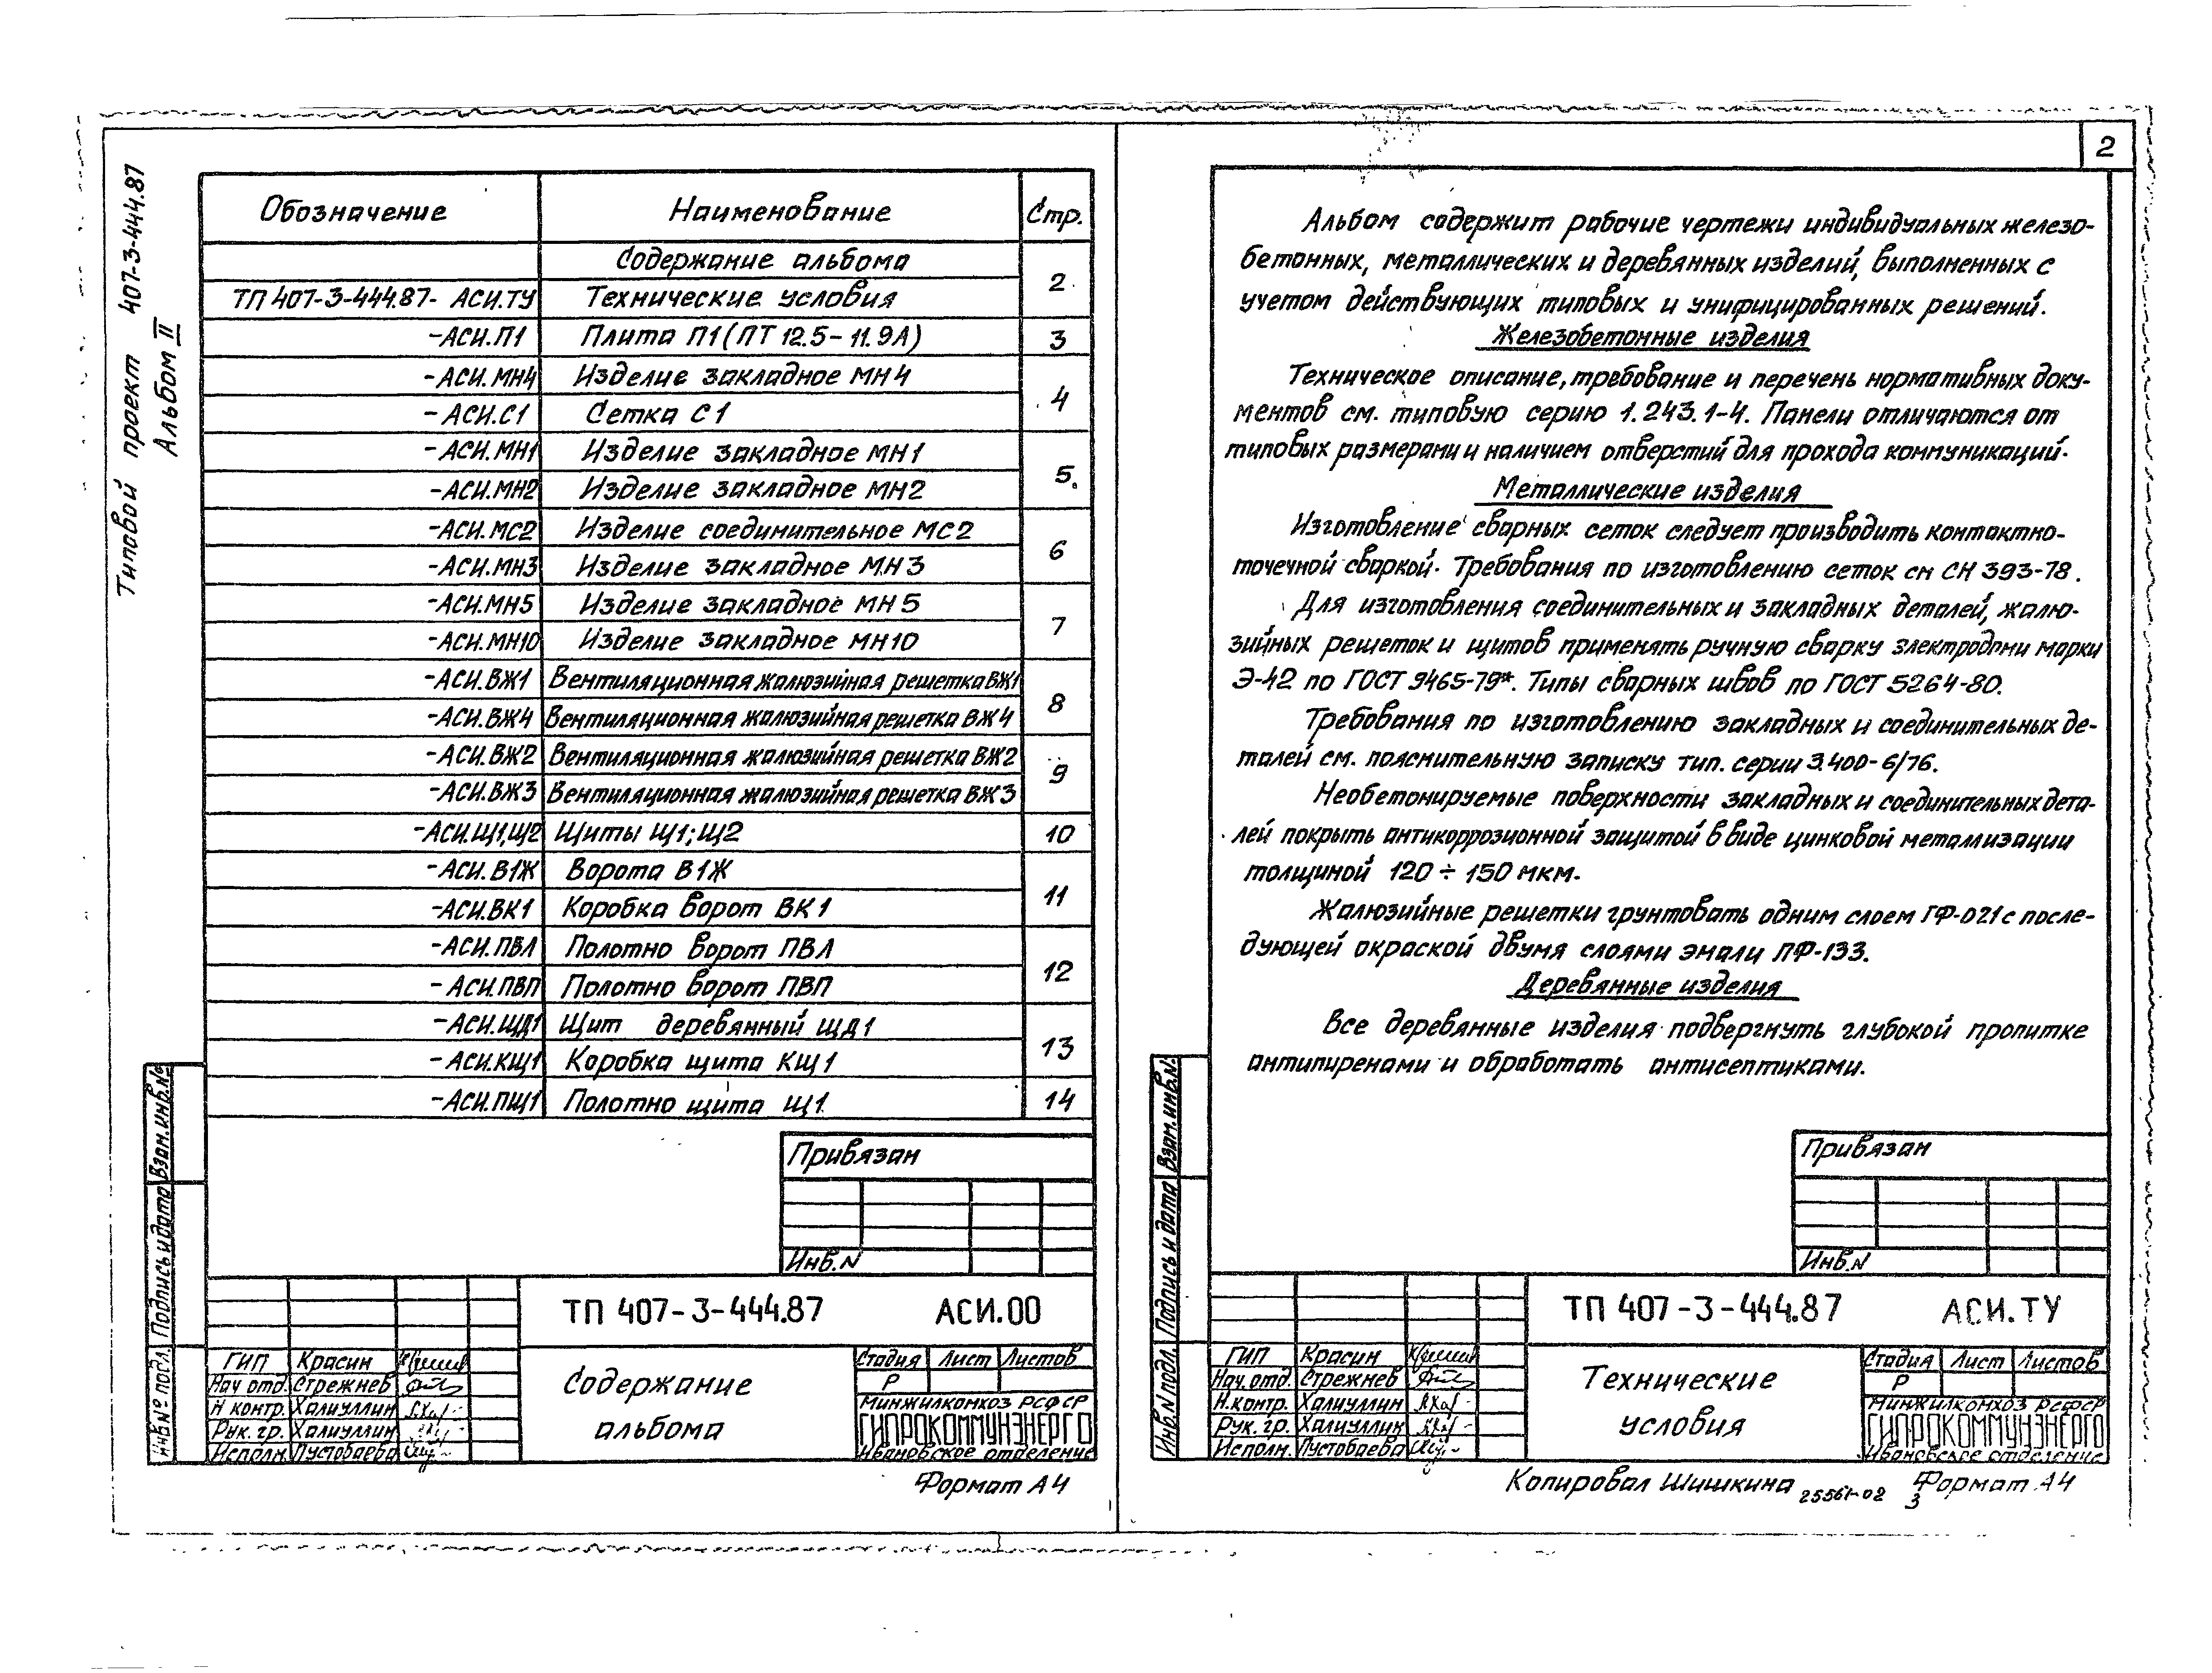 Типовой проект 407-3-444.87
Альбом II
Обозначение Наименование Стр.
Содержание альбома 2
ТП 407-3-444.87- АСИ.ТУ Технические условия
-АСИ.П1 Плита П1 (ПТ 12.5-11.9А) 3
-АСИ.МН4 Изделие закладное МН4 4
- АСИ.С1 Сетка С1
-АСИ.МН1 Изделие закладное МН1 5
-АСИ.МН2 Изделие закладное МН2
-АСИ.МС2 Изделие соединительное МС2 6
-АСИ.МН3 Изделие закладное МН3
-АСИ.МН5 Изделие закладное МН5 7
-АСИ.МН10 Изделие закладное МН10
-АСИ.ВЖ1 Вентиляционная жалюзийная решетка ВЖ1 8
-АСИ.ВЖ4 Вентиляционная жалюзийная решетка ВЖ4
-АСИ.ВЖ2 Вентиляционная жалюзийная решетка ВЖ2 9
-АСИ.ВЖ3 Вентиляционная жалюзийная решетка ВЖ3
-АСИ.Щ1,Щ2 Щиты Щ1; Щ2 10
-АСИ.В1Ж Ворота В1Ж 11
-АСИ.ВК1 Коробка ворот ВК1
-АСИ.ПВЛ Полотно ворот ПВЛ 12
- АСИ.ПВП Полотно ворот ПВП
-АСИ.ЩД1 Щит деревянный ЩД1 13
-АСИ.КЩ1 Коробка щита КЩ1
-АСИ.ПЩ1 Полотно щита Щ1 14
Привязан
Инв.N
ТП 407-3-444.87 АСИ.00
ГИП Красин
Нач отд. Стрежнев
Н контр. Халиуллин
Рук. гр. Халиуллин
Исполн. Пустобаева
Содержание
альбома
Стадия Лист Листов
Р
Минжилкомхоз РСФСР
ГИПРОКОММУНЭНЕРГО
Ивановское отделение
Формат А4
Инв.№ подл. Подпись и дата Взам.инв.№
2
Альбом содержит рабочие чертежи индивидуальных железо-
бетонных, металлических и деревянных изделий, выполненных с
учетом действующих типовых и унифицированных решений.
Железобетонные изделия
Техническое описание, требование и перечень нормативных доку-
ментов см. типовую серию 1.243.1-4. Панели отличаются от
типовых размерами и наличием отверстий для прохода коммуникаций.
Металлические изделия
Изготовление сварных сеток следует производить контактно-
точечной сваркой. Требования по изготовлению сеток см СН 393-78.
Для изготовления соединительных и закладных деталей, жалю-
зийных решеток и щитов применять ручную сварку электродами марки
Э-42 по ГОСТ 9465-79*. Типы сварных швов по ГОСТ 5264-80.
Требования по изготовлению закладных и соединительных де-
талей см. пояснительную записку тип. серии 3.400-6/76.
Необетонируемые поверхности закладных и соединительных дета-
лей покрыть антикоррозионной защитой в виде цинковой металлизации
толщиной 120 ÷ 150 мкм.
Жалюзийные решетки грунтовать одним слоем ГФ-021 с после-
дующей окраской двумя слоями эмали ПФ-133.
Деревянные изделия
Все деревянные изделия подвергнуть глубокой пропитке
антипиренами и обработать антисептиками.
Привязан
Инв.N
ТП 407-3-444.87 АСИ.ТУ
ГИП Красин
Нач. отд. Стрежнев
Н.контр. Халиуллин
Рук. гр. Халиуллин
Исполн. Пустобаева
Технические
условия
Стадия Лист Листов
Р
Минжилкомхоз РСФСР
ГИПРОКОММУНЭНЕРГО
Ивановское отделение
Инв.N подл. Подпись и дата Взам.инв.N
Копировал Шишкина 25561-02 Формат А4
3